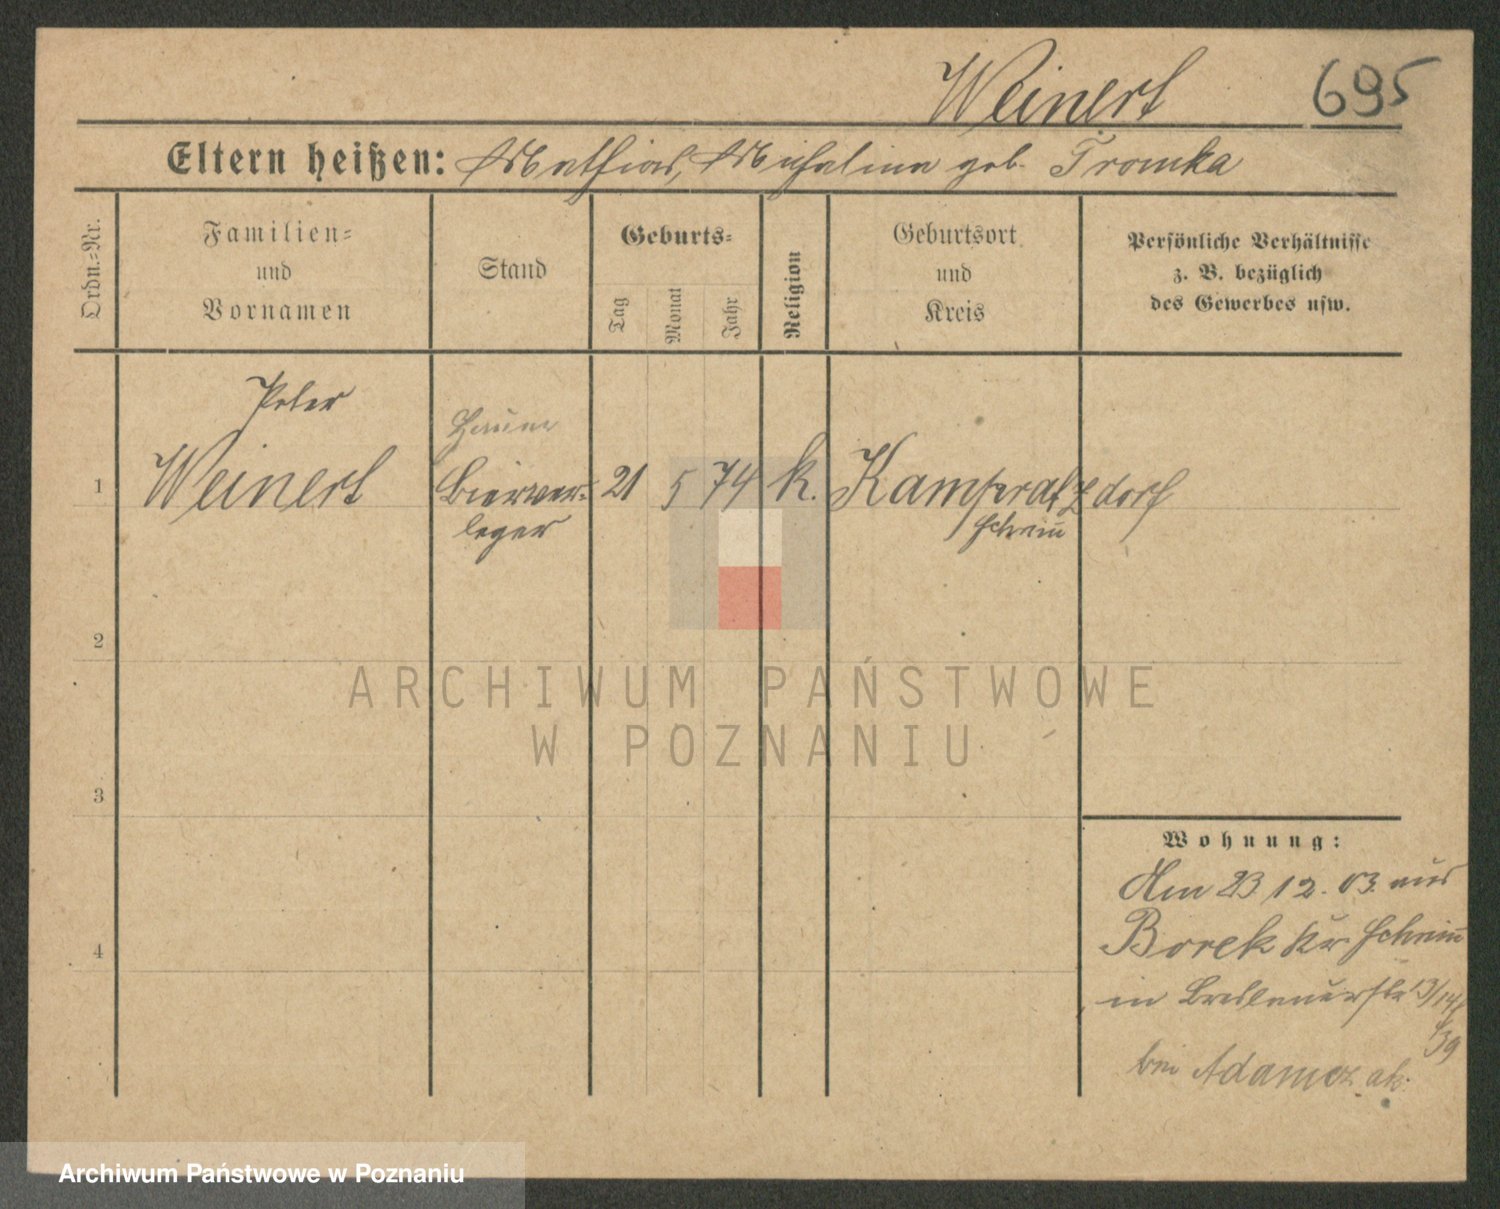 Weinert 695
Eltern heißen: Mathias, Michalina geb. Tromka
Ordn.-Nr.
Familien- und Vornamen
Stand
Geburts-
Tag Monat Jahr
Religion
Geburtsort und Kreis
Persönliche Verhältnisse
z. B. bezüglich
des Gewerbes usw.
Peter
1 Weinert Bierver- 21 5 74 k. Kampratzdorf
leger Schrim̅
2
ARCHIWUM PAŃSTWOWE
W POZNANIU
3
Wohnung:
Am 23 12. 03. aus
4 Borek Kr. Schrim̅
in Breslauerstr 13/14
39
bei Adamcz ab.
Archiwum Państwowe w Poznaniu